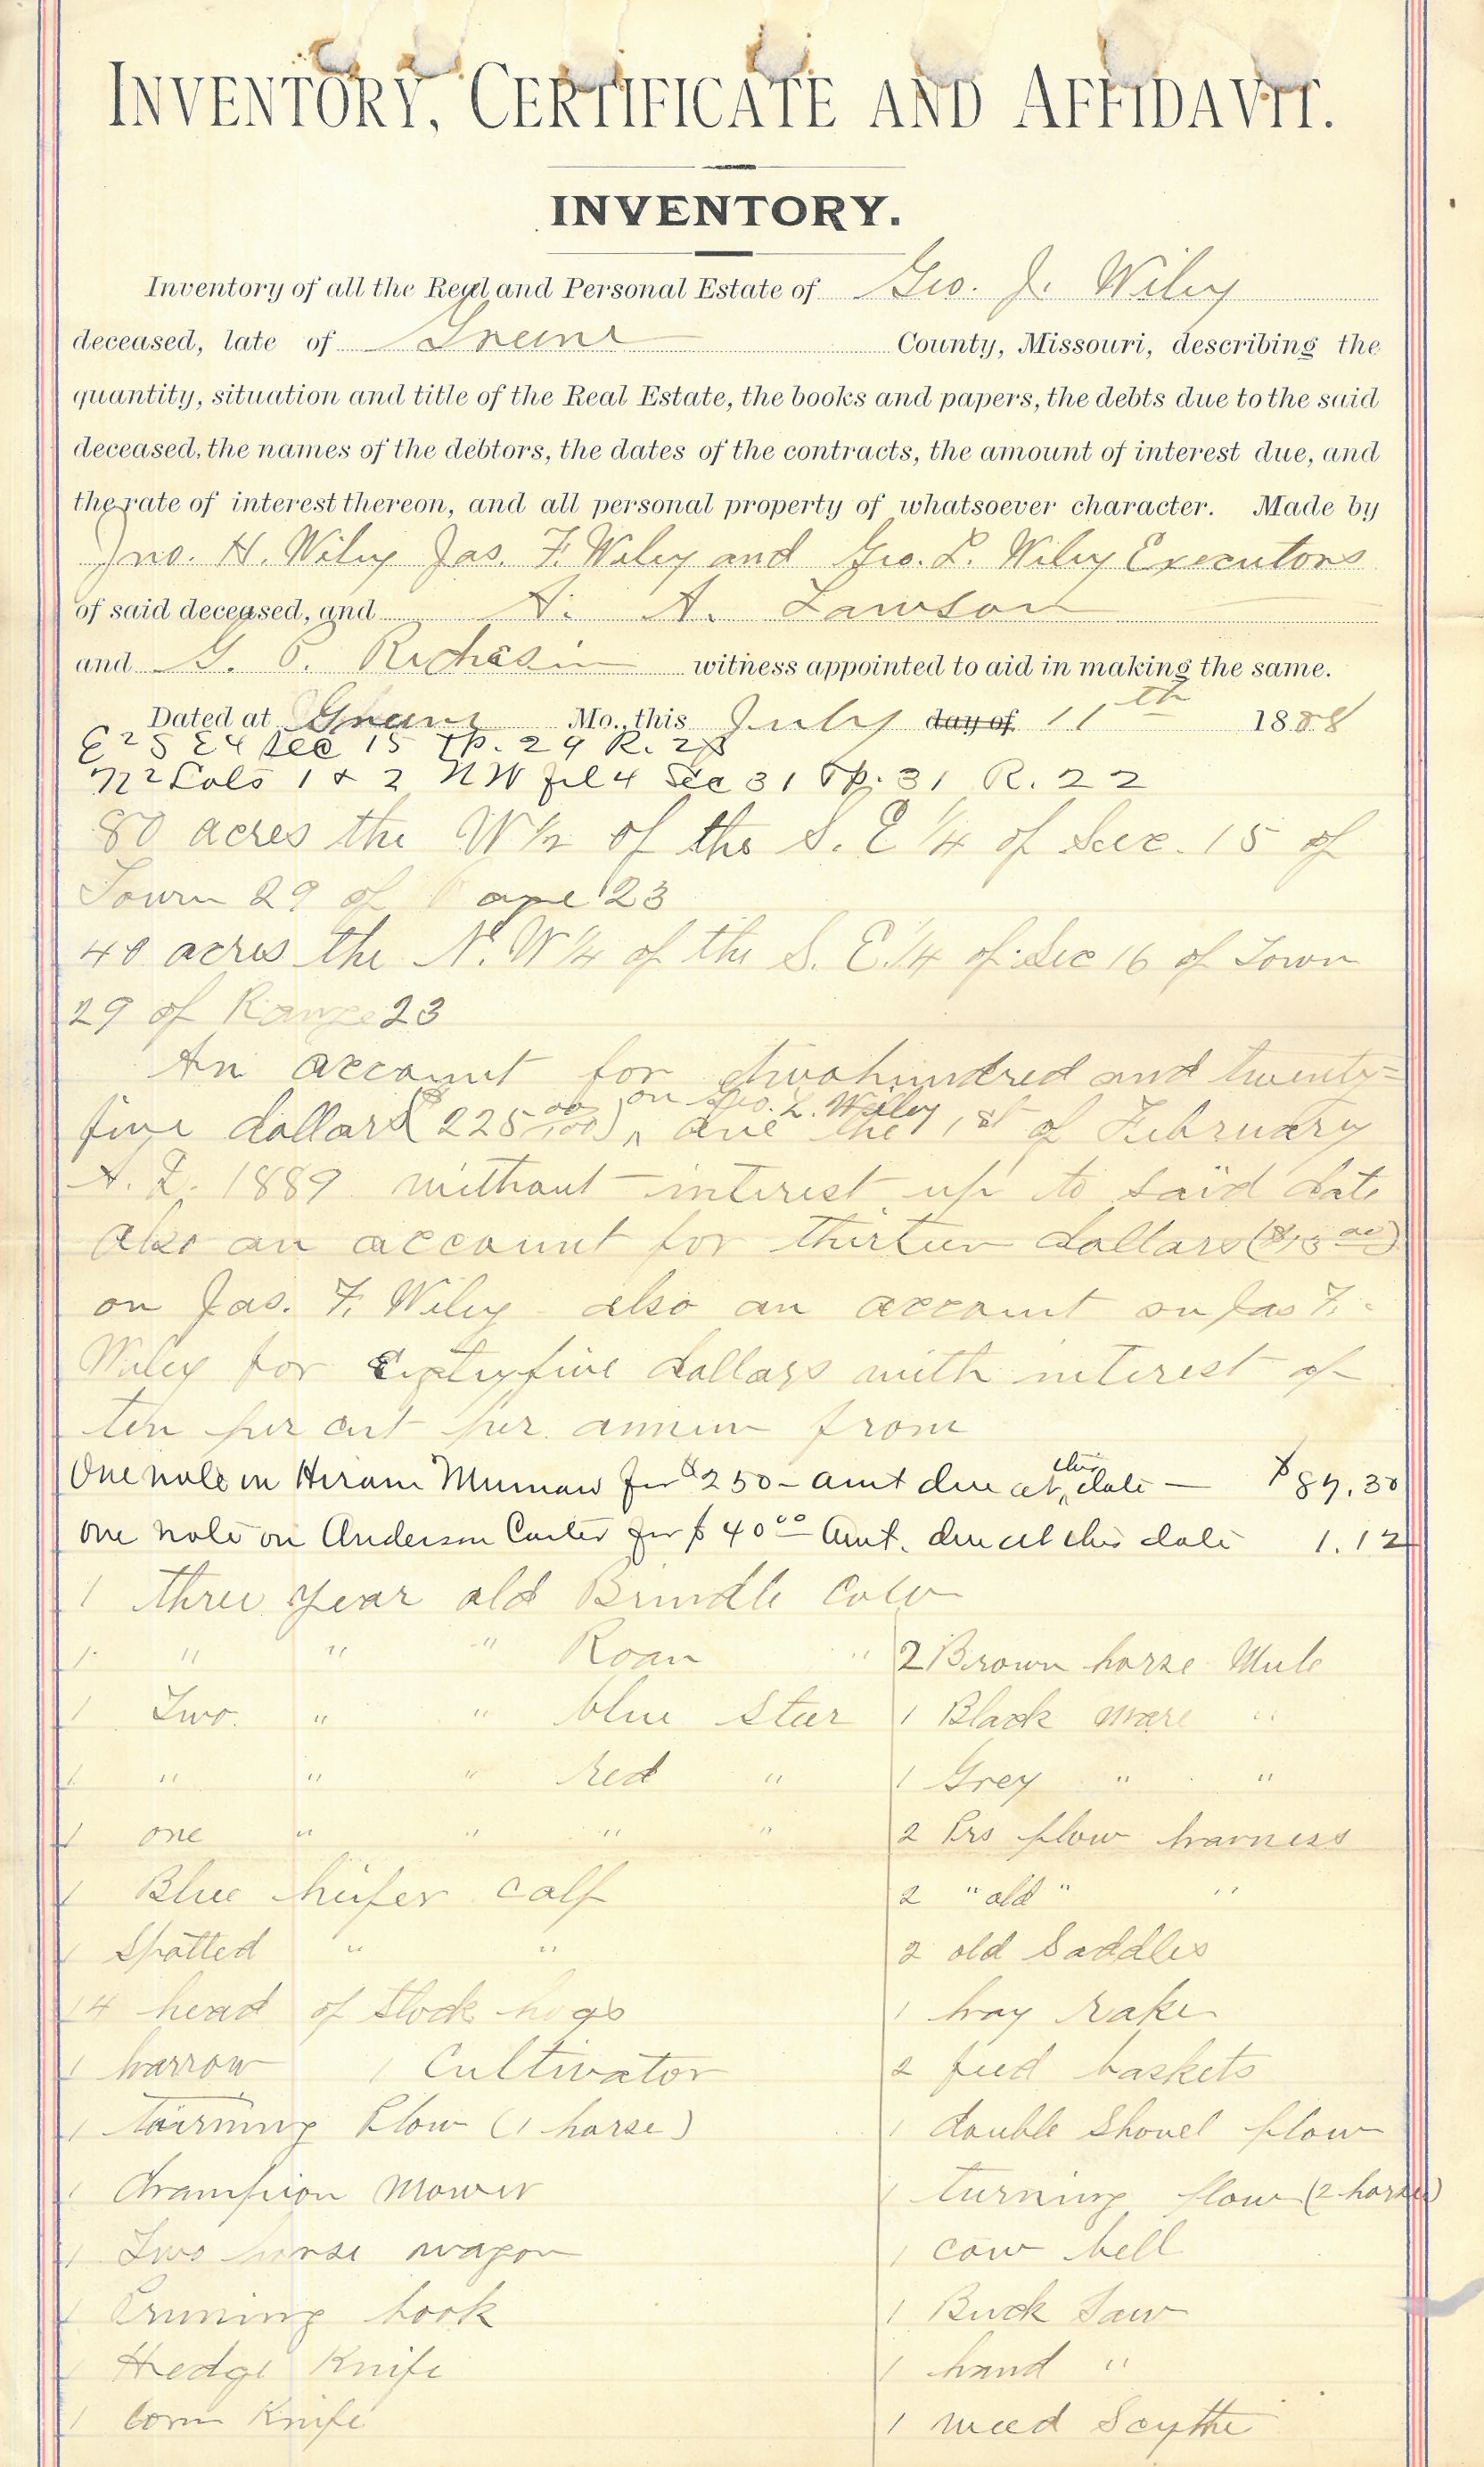 INVENTORY, CERTIFICATE AND AFFIDAVIT.
INVENTORY.
Inventory of all the Real and Personal Estate of Geo. J. Wiley
deceased, late of Greene County, Missouri, describing the
quantity, situation and title of the Real Estate, the books and papers, the debts due to the said
deceased, the names of the debtors, the dates of the contracts, the amount of interest due, and
the rate of interest thereon, and all personal property of whatsoever character. Made by
Jno. H. Wiley Jas. F. Wiley and Geo. L. Wiley Executors
of said deceased, and A. A. Lawson
and G. P. witness appointed to aid in making the same.
Dated at Greene Mo., this July day of 11th 1888
E 2 S E 4 Sec 15 Tp. 29 R. 23
N 2 Lots 1 & 2 NW frl 4 Sec 31 Tp. 31 R. 22
80 acres the W 1/2 of the S. E 1/4 of Sec. 15 of
Town 29 of 23
40 acres the N. W 1/4 of the S. E. 1/4 of Sec 16 of Town
29 of Range 23
An account for two hundred and twenty=
five dollars ($225 00/100) on Geo. L. Wiley due the 1st of February
A. D. 1889 without interest up to said date
also an account for thirteen dollars ($13 00)
on Jas. F. Wiley also an account on Jas F.
Wiley for five dollars with interest of
ten per cent per annum from
One note on Hiram for $250 - amt due at this date — $87.30
One note on Anderson Carter for $40 00 Amt. due at this date 1.12
1 three year old Brindle Cow
1 " " " Roan " 2 Brown horse Mule
1 Two " " blue Steer 1 Black mare "
1 " " " red " 1 Grey " "
1 one " " " " 2 Prs plow harness
1 Blue heifer calf 2 " old " "
1 Spotted " " 2 old Saddles
14 head of Stock hogs 1 hay rake
1 harrow 1 Cultivator 2 feed baskets
1 turning Plow (1 horse) 1 double Shovel plow
1 Champion Mower 1 turning plow (2 horse)
1 Two horse wagon 1 cow bell
1 Pruning hook 1 Buck Saw
1 Hedge Knife 1 hand "
1 Corn Knife 1 weed Scythe